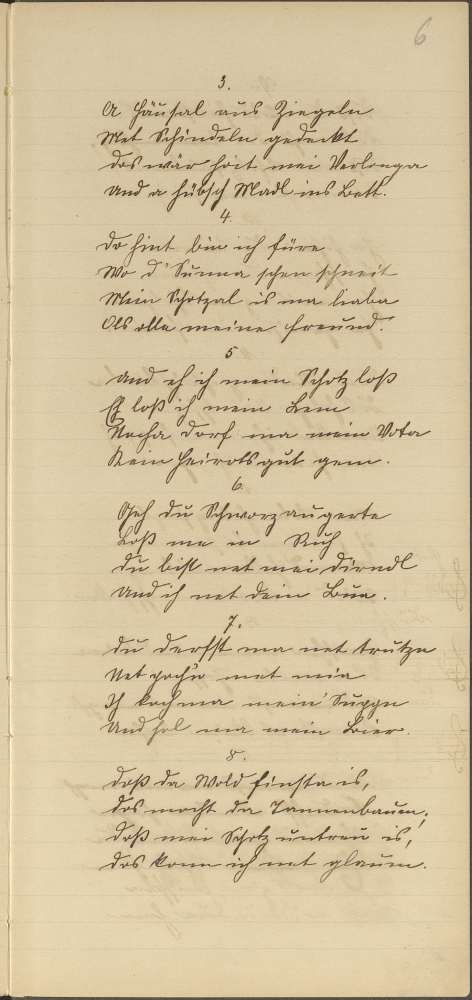 6
3.
A Häusal aus Ziegeln
Met Schindeln gedeckt
das wär hoit mei Verlonga
Und a hübsch Madl ins Bett.
4.
Do hint bin ich füre
Wo d' Sunna schen schneit
Mein Schotzal is ma liaba
Ols olle meine Freund.
5
Und eh ich mein Schotz loß
Eh loß ich mein Lem
Nocha dorf ma mein Vota
Kein Heirotsgut gem.
6.
Geh du Schworzaugerte
Loß me in Ruh
du bist net mei Dirndl
Und ich net dein Bua.
7.
du derfst ma net trutzn
Net pochn met mia
Ich koch ma mein Suppn
Und hol ma mein Bier.
8.
daß da Wold finsta is,
das mocht da Tannenbaum;
daß mei Schotz untreu is,
das konn ich net glaum.